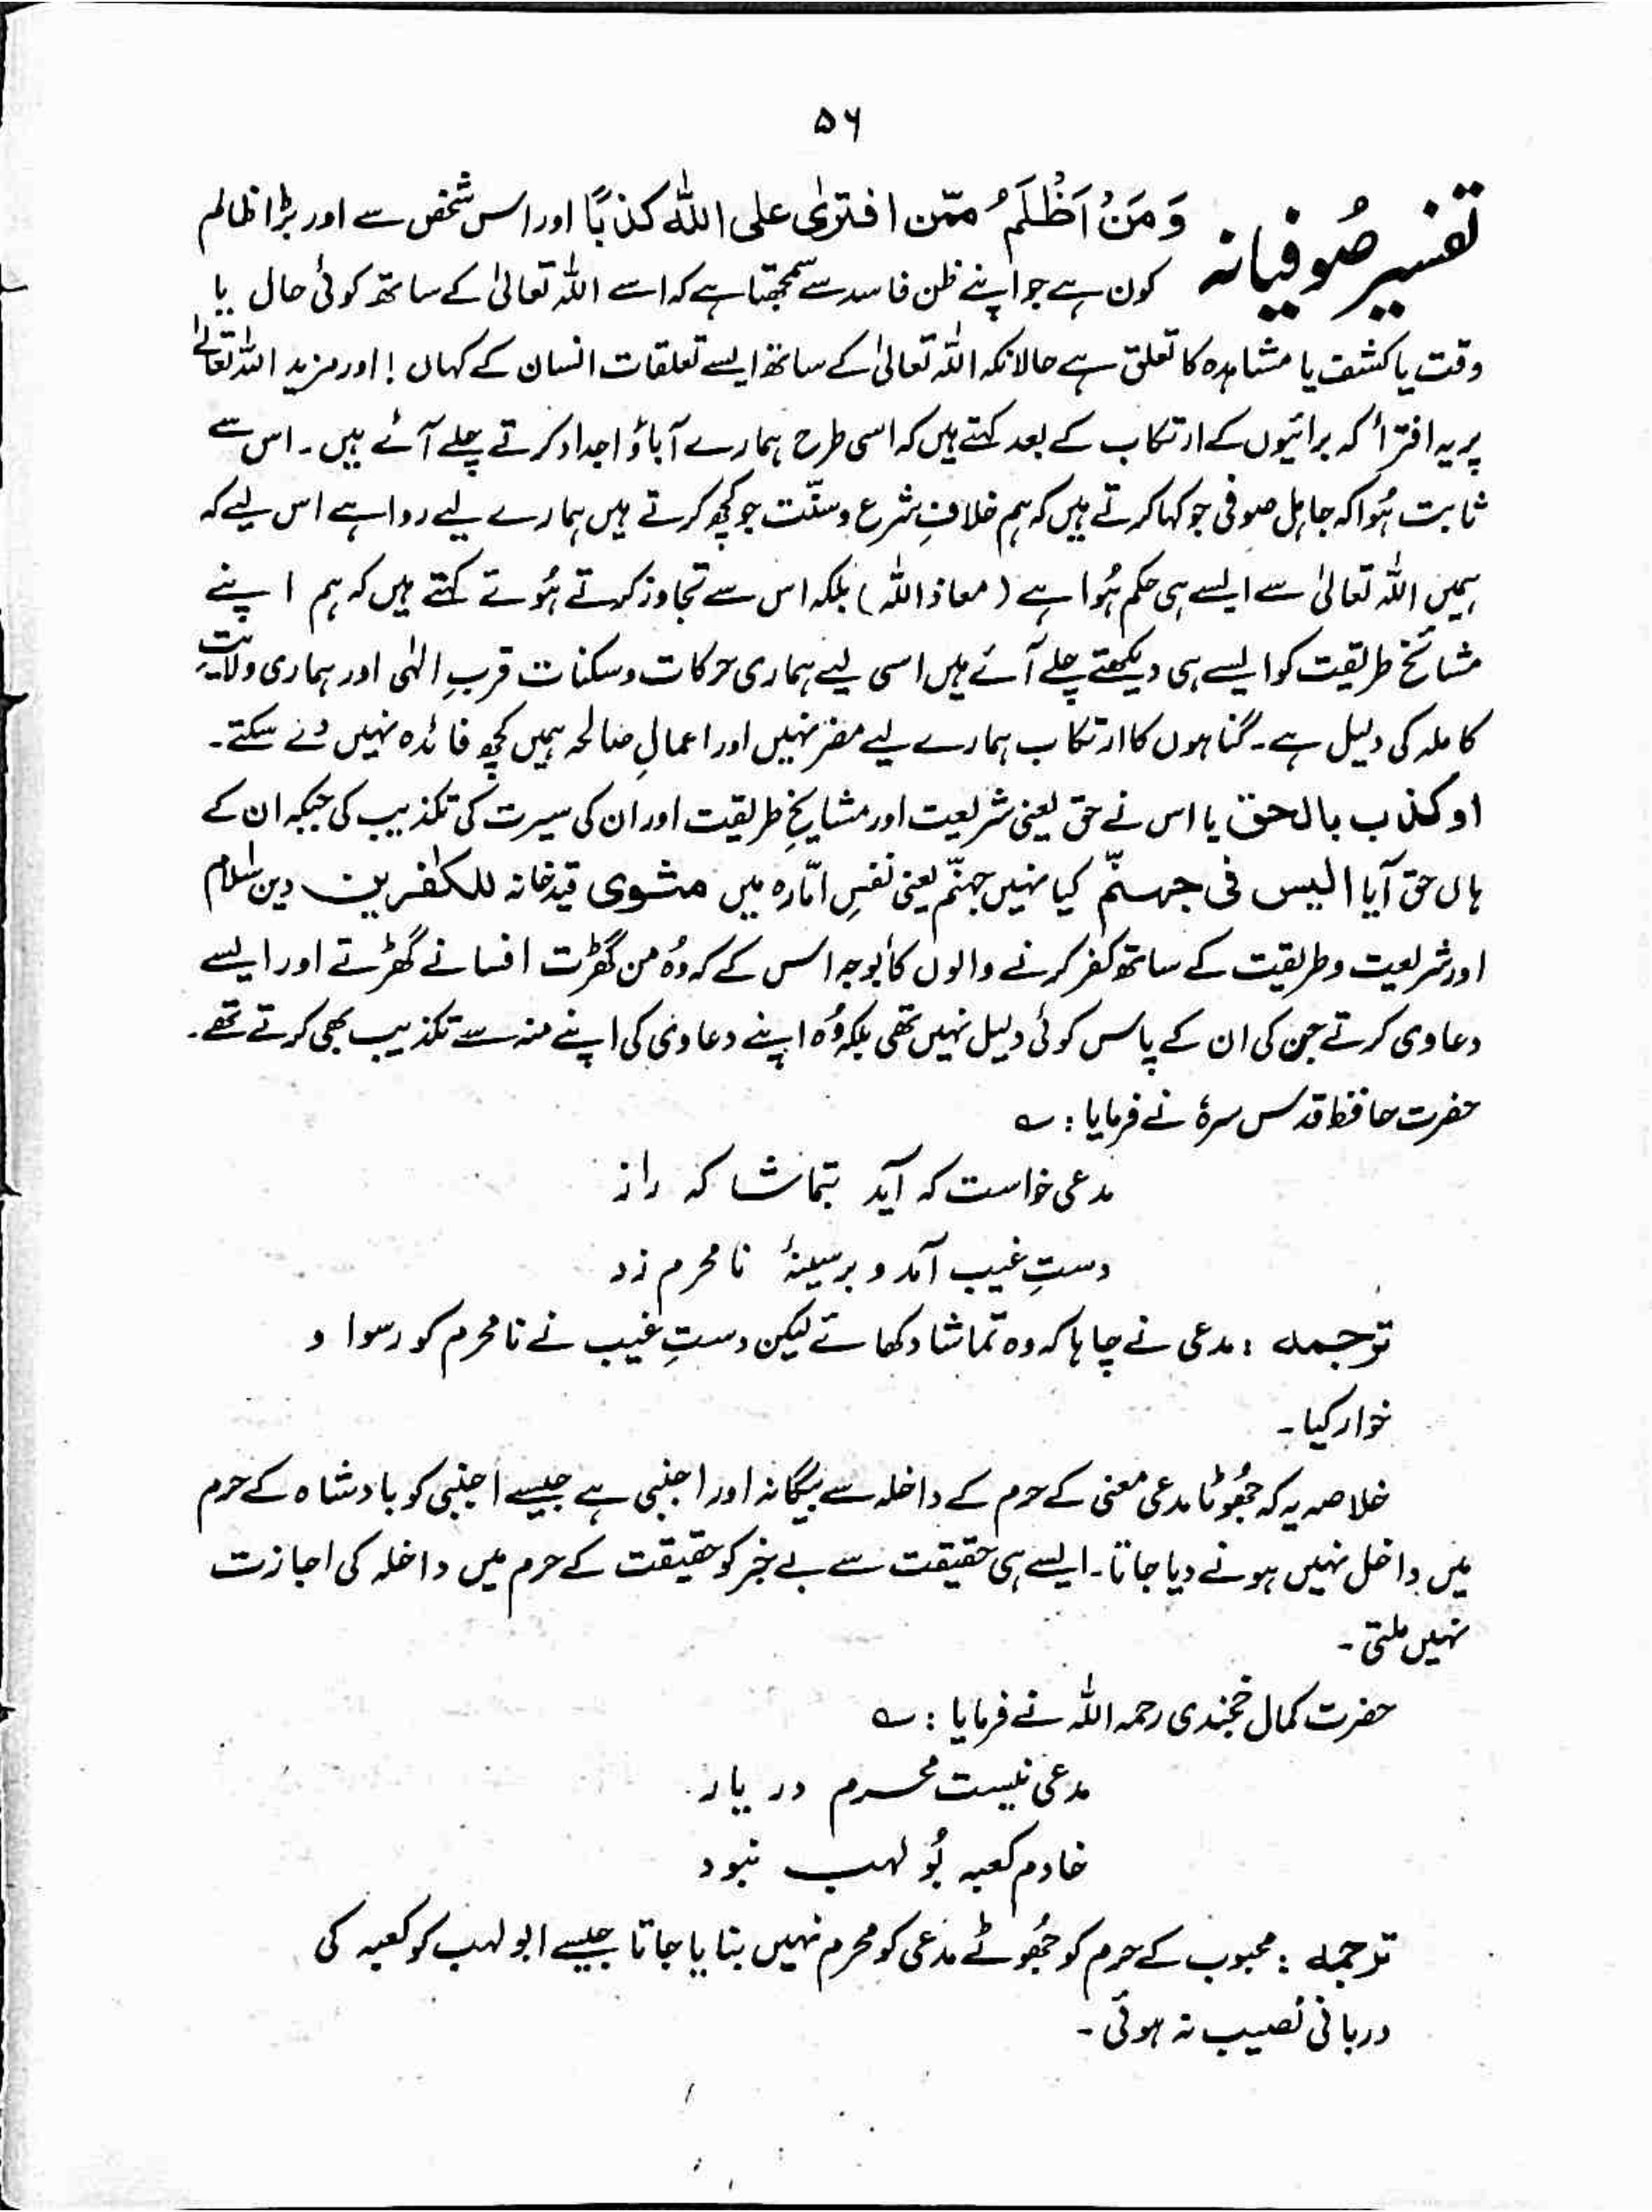 ۵۶
تفسیر صُوفیانہ وَمَنْ اَظْلَمُ ممّن افترٰی علی اللّٰہ کذبًا اور اس شخص سے اور بڑا ظالم
کون ہے جو اپنے ظن فاسد سے سمجھتا ہے کہ اسے اللہ تعالیٰ کے ساتھ کوئی حال یا
وقت یا کشف یا مشاہدہ کا تعلق ہے حالانکہ اللہ تعالیٰ کے ساتھ ایسے تعلقات انسان کے کہاں! اور مزید اللہ تعالےٰ
پر یہ افترأ کہ برائیوں کے ارتکاب کے بعد کہتے ہیں کہ اسی طرح ہمارے آباؤ اجداد کرتے چلے آئے ہیں۔ اس سے
ثابت ہُوا کہ جاہل صوفی جو کہا کرتے ہیں کہ ہم خلافِ شرع و سنّت جو کچھ کرتے ہیں ہمارے لیے روا ہے اس لیے کہ
ہمیں اللہ تعالیٰ سے ایسے ہی حکم ہُوا ہے (معاذ اللہ) بلکہ اس سے تجاوز کرتے ہُوئے کہتے ہیں کہ ہم اپنے
مشائخ طریقت کو ایسے ہی دیکھتے چلے آئے ہیں اسی لیے ہماری حرکات و سکنات قربِ الٰہی اور ہماری ولایتِ
کاملہ کی دلیل ہے۔ گناہوں کا ارتکاب ہمارے لیے مضر نہیں اور اعمالِ صالحہ ہمیں کچھ فائدہ نہیں دے سکتے۔
او کذب بالحق یا اس نے حق یعنی شریعت اور مشایخِ طریقت اور ان کی سیرت کی تکذیب کی جبکہ ان کے
ہاں حق آیا الیس فی جہنّم کیا نہیں جہنّم یعنی نفسِ امّارہ میں مثوی قید خانہ للکٰفرین دین اسلام
اور شریعت و طریقت کے ساتھ کفر کرنے والوں کا بوجہ اس کے کہ وُہ من گھڑت افسانے گھڑتے اور ایسے
دعاوی کرتے جن کی ان کے پاس کوئی دلیل نہیں تھی بلکہ وُہ اپنے دعاوی کی اپنے منہ سے تکذیب بھی کرتے تھے۔
حضرت حافظ قدس سرہٗ نے فرمایا: ؎
مدعی خواست کہ آید بتماشا کہ راز
دستِ غیب آمد و بر سینۂ نامحرم زد
ترجمہ : مدعی نے چاہا کہ وہ تماشا دکھائے لیکن دستِ غیب نے نامحرم کو رسوا و
خوار کیا۔
خلاصہ یہ کہ جھُوٹا مدعی معنی کے حرم کے داخلہ سے بیگانہ اور اجنبی ہے جیسے اجنبی کو بادشاہ کے حرم
میں داخل نہیں ہونے دیا جاتا۔ ایسے ہی حقیقت سے بے خبر کو حقیقت کے حرم میں داخلہ کی اجازت
نہیں ملتی۔
حضرت کمال خجندی رحمہ اللہ نے فرمایا : ؎
مدعی نیست محرم در یار
خادم کعبہ بُولہب نبود
ترجمہ : محبوب کے حرم کو جھُوٹے مدعی کو محرم نہیں بنایا جاتا جیسے ابولہب کو کعبہ کی
دربانی نصیب نہ ہوئی۔